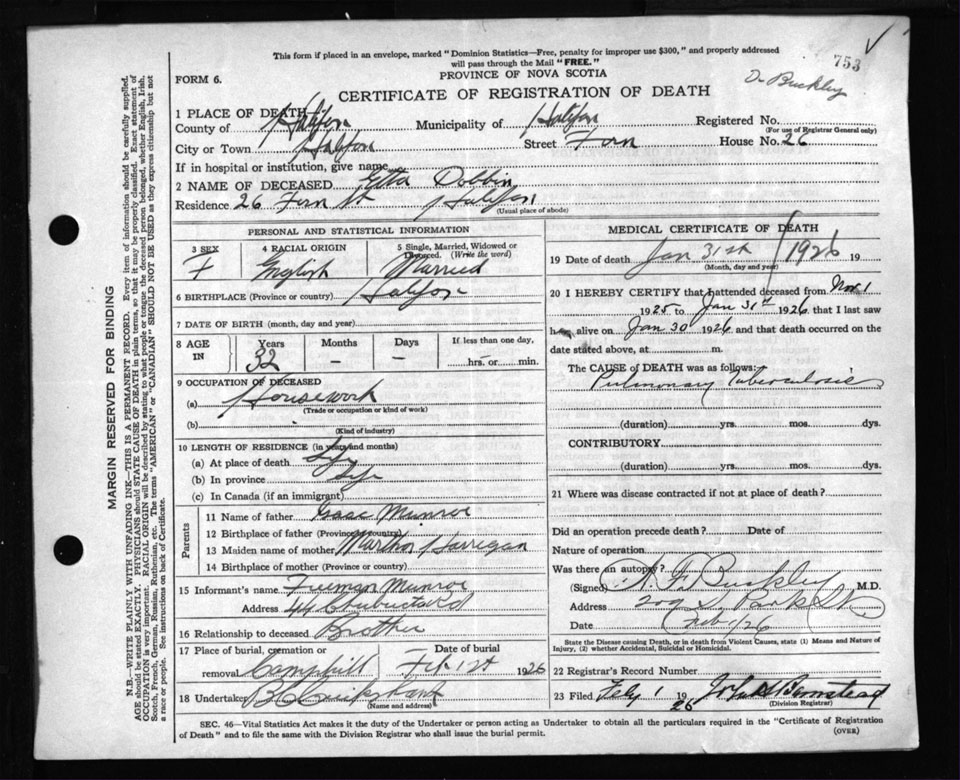 This form if placed in an envelope, marked "Dominion Statistics—Free, penalty for improper use $300," and properly addressed
will pass through the Mail "FREE."
753
FORM 6.
PROVINCE OF NOVA SCOTIA
Dr Buckley
CERTIFICATE OF REGISTRATION OF DEATH
1 PLACE OF DEATH
County of Halifax Municipality of Halifax Registered No.
(For use of Registrar General only)
City or Town Halifax Street Fern House No. 26
If in hospital or institution, give name
2 NAME OF DECEASED Etta Dobbin
Residence 26 Fern St Halifax
(Usual place of abode)
PERSONAL AND STATISTICAL INFORMATION
3 SEX
F
4 RACIAL ORIGIN
English
5 Single, Married, Widowed or
Divorced. (Write the word)
Married
6 BIRTHPLACE (Province or country) Halifax
7 DATE OF BIRTH (month, day and year)
8 AGE
IN
Years Months Days If less than one day,
32 — — hrs. or min.
9 OCCUPATION OF DECEASED
(a) Housework
(Trade or occupation or kind of work)
(b)
(Kind of industry)
10 LENGTH OF RESIDENCE (in years and months)
(a) At place of death
(b) In province Life
(c) In Canada (if an immigrant)
Parents
11 Name of father Isaac Munroe
12 Birthplace of father (Province or country)
13 Maiden name of mother Martha Harrigan
14 Birthplace of mother (Province or country)
15 Informant's name Freeman Munroe
Address 44 Chebucto Rd
16 Relationship to deceased Brother
17 Place of burial, cremation or
removal Camphill
Date of burial
Feb 1st 1926
18 Undertaker
(Name and address)
MEDICAL CERTIFICATE OF DEATH
19 Date of death Jan 31st 1926 19
(Month, day and year)
20 I HEREBY CERTIFY that I attended deceased from Nov 1
1925 to Jan 31st 1926 that I last saw
her alive on Jan 30 1926 and that death occurred on the
date stated above, at m.
The CAUSE of DEATH was as follows:
Pulmonary Tuberculosis
(duration) yrs. mos. dys.
CONTRIBUTORY
(duration) yrs. mos. dys.
21 Where was disease contracted if not at place of death?
Did an operation precede death? Date of
Nature of operation
Was there an autopsy?
(Signed) A. F. Buckley M.D.
Address
Date Feb 1/26
State the Disease causing Death, or in death from Violent Causes, state (1) Means and Nature of
Injury, (2) whether Accidental, Suicidal or Homicidal.
22 Registrar's Record Number
23 Filed Feby 1 1926
(Division Registrar)
SEC. 46—Vital Statistics Act makes it the duty of the Undertaker or person acting as Undertaker to obtain all the particulars required in the "Certificate of Registration
of Death" and to file the same with the Division Registrar who shall issue the burial permit.
(OVER)
MARGIN RESERVED FOR BINDING
N.B.—WRITE PLAINLY WITH UNFADING INK—THIS IS A PERMANENT RECORD. Every item of information should be carefully supplied.
AGE should be stated EXACTLY. PHYSICIANS should STATE CAUSE OF DEATH in plain terms, so that it may be properly classified. Exact statement of
OCCUPATION is very important. RACIAL ORIGIN will be described by stating to what people or tongue the deceased person belonged, whether English, Irish,
Scotch, French, German, Russian, Ruthenian, etc. The terms "AMERICAN" or "CANADIAN" SHOULD NOT BE USED as they express citizenship but not
a race or people. See instructions on back of Certificate.